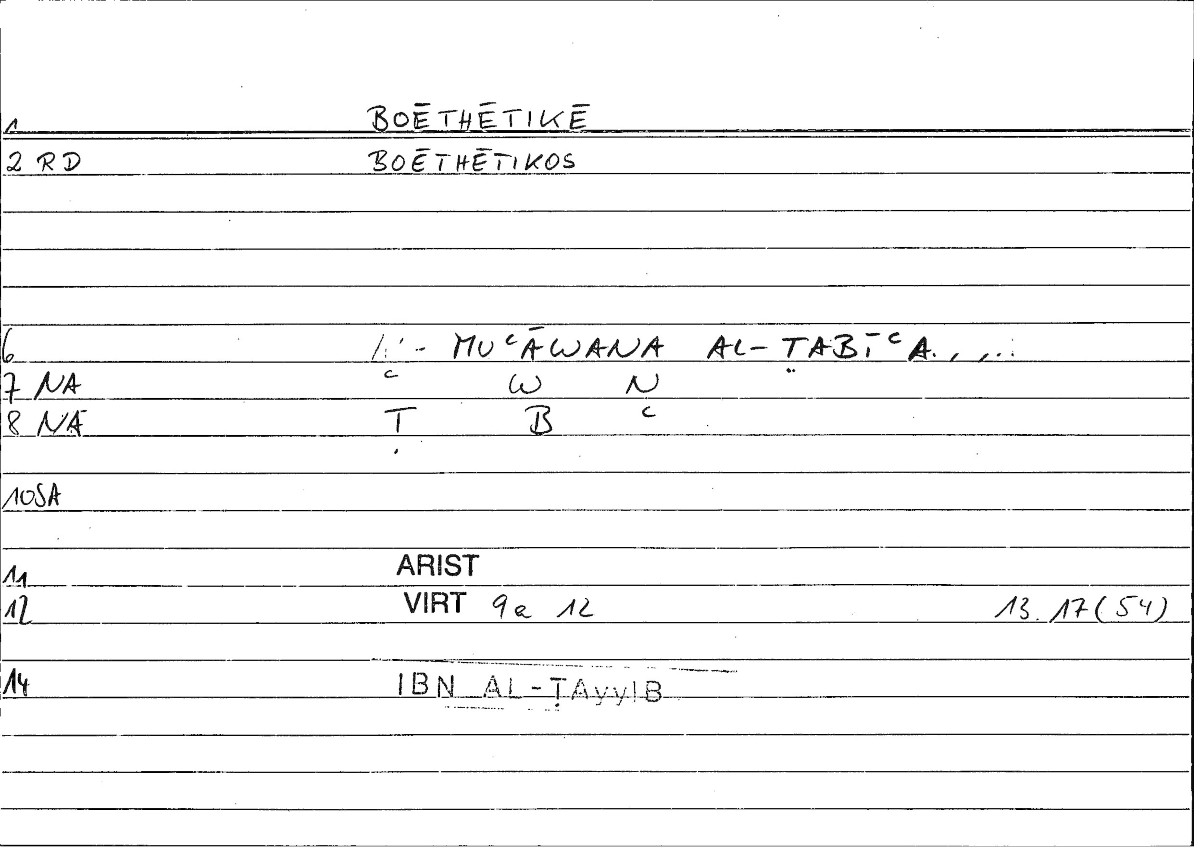 1 BOĒTHĒTIKĒ
2 RD BOĒTHĒTIKOS
6 MUᶜĀWANA AL-ṬABĪᶜA
7 NA ᶜ W N
8 NA Ṭ B ᶜ
10SA
11 ARIST
12 VIRT 9a 12 13.17(54)
14 IBN AL-ṬAyyIB